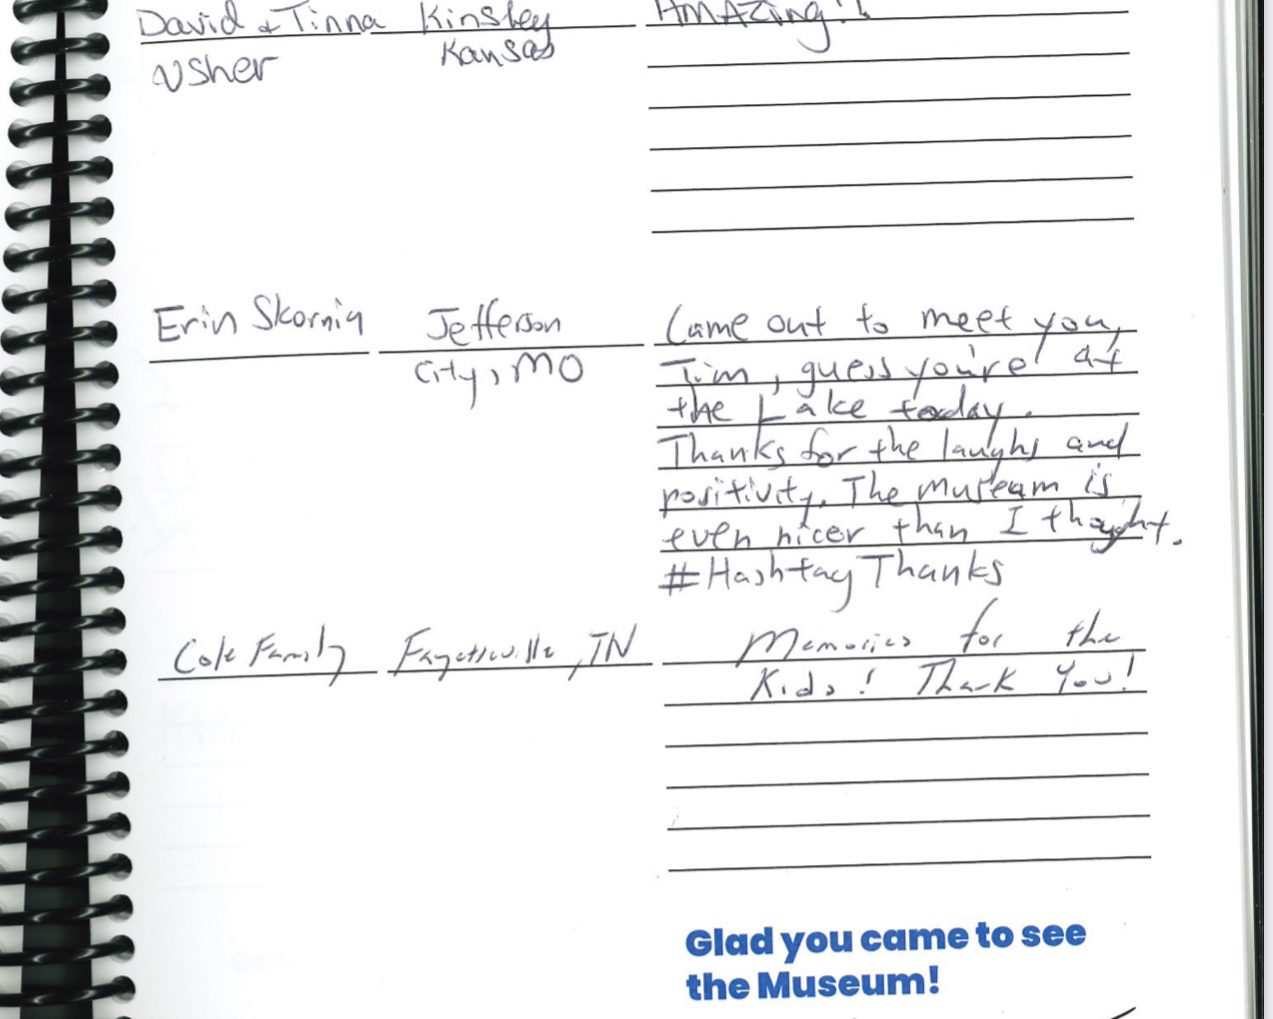 David & Tinna Kinsley AMAZing!!
Usher Kansas
Erin Skornia Jefferson Came out to meet you,
City, MO Tim, guess you're at
the Lake today.
Thanks for the laughs and
positivity. The museam is
even nicer than I thought.
#HashtagThanks
Cole Family Fayetteville, TN Memories for the
Kids! Thank You!
Glad you came to see
the Museum!